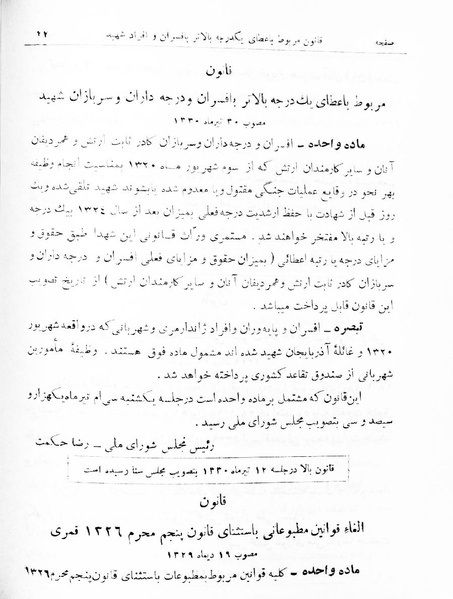 صفحه قانون مربوط باعطای یکدرجه بالاتر بافسران و افراد شهید ۱۲
قانون
مربوط باعطای یك درجه بالاتر بافسران ودرجه داران وسربازان شهید
مصوب ۳۰ تیرماه ۱۳۳۰
ماده واحده - افسران و درجه داران وسربازان کادر ثابت ارتش و همردیفان
آنان و سایر کارمندان ارتش که از سوم شهریور ماه ۱۳۲۰ بمناسبت انجام وظیفه
بهر نحو در وقایع عملیات جنگی مقتول ویا معدوم شده یابشوند شهید تلقی شده ویك
روز قبل از شهادت با حفظ ارشدیت درجه فعلی بمیزان بعد از سال ۱۳۲۴ بیك درجه
و یا رتبه بالا مفتخر خواهند شد. مستمری وراث قانونی این شهدا طبق حقوق و
مزایای درجه یا رتبه اعطائی ( بمیزان حقوق و مزایای فعلی افسران و درجه داران و
سربازان کادر ثابت ارتش وهمردیفان آنان و سایر کارمندان ارتش ) از تاریخ تصویب
این قانون قابل پرداخت میباشد .
تبصره - افسران و پایه وران وافراد ژاندارمری و شهربانی که در واقعه شهریور
۱۳۲۰ و غائلهٔ آذربایجان شهید شده اند مشمول ماده فوق هستند . وظیفهٔ مأمورین
شهربانی از صندوق تقاعد کشوری پرداخته خواهد شد .
این قانون که مشتمل بر ماده واحده است در جلسه یکشنبه سی ام تیرماه یکهزارو
سیصد و سی بتصویب مجلس شورای ملی رسید .
رئیس مجلس شورای ملی - رضا حکمت
قانون بالا در جلسه ۱۲ تیرماه ۱۳۳۰ بتصویب مجلس سنا رسیده است
قانون
الغاء قوانین مطبوعاتی باستثنای قانون پنجم محرم ۱۳۲۶ قمری
مصوب ۱۹ دیماه ۱۳۲۹
ماده واحده - کلیه قوانین مربوط بمطبوعات باستثنای قانون پنجم محرم ۱۳۲۶